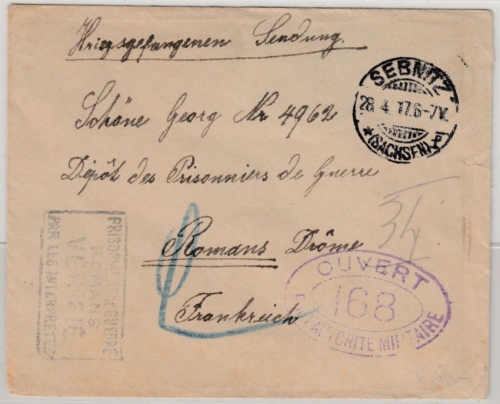 Kriegsgefangenen Sendung.
SEBNITZ
28.4.17.6-7V.
(SACHSEN)
Schöne Georg Nr 4962
Dépôt des Prisonniers de Guerre
Romans Drôme
Frankreich
OUVERT
168
AUTORITE MILITAIRE
PRISONNIERS DE GUERRE
ROMANS
VÉRIFIÉ
PAR LES INTERPRETES